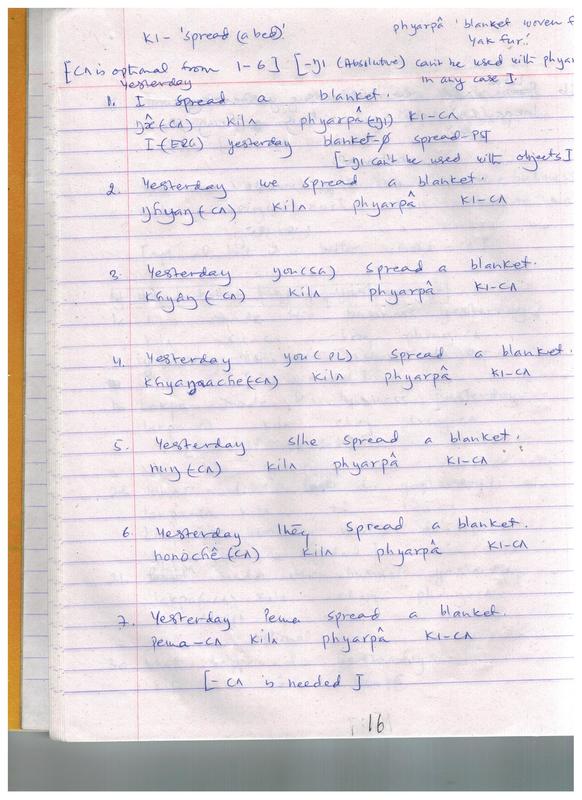 KI- 'spread (a bed)'.
phyarpâ 'blanket woven f
Yak fur.'
[CΛ is optional from 1-6] [-ŋI (Absolutive) can't be used with phyar
in any case].
Yesterday
1. I spread a blanket.
(CΛ) kilΛ phyarpâ(-ŋI) KI-CΛ
I-(ERG) yesterday blanket-Ø spread-PST
[-ŋI can't be used with objects]
2. Yesterday we spread a blanket.
(CΛ) kilΛ phyarpâ KI-CΛ
3. Yesterday you(SG) spread a blanket.
khyâŋ (-CΛ) kilΛ phyarpâ KI-CΛ
4. Yesterday you(PL) spread a blanket.
(CΛ) kilΛ phyarpâ KI-CΛ
5. Yesterday s/he spread a blanket.
huŋ (-CΛ) kilΛ phyarpâ KI-CΛ
6. Yesterday they spread a blanket.
honochê (CΛ) kilΛ phyarpâ KI-CΛ
7. Yesterday Pema spread a blanket.
Pema-CΛ kilΛ phyarpâ KI-CΛ
[- CΛ is needed]
16